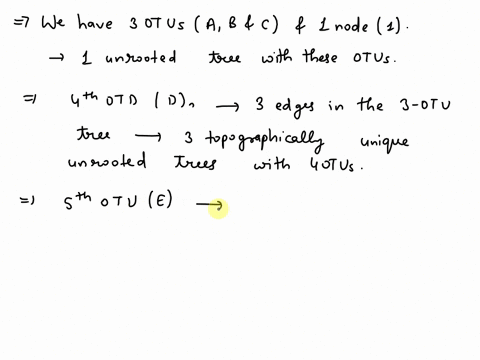 => We have 3 OTUs (A, B & C) & 1 node (1).
→ 1 unrooted tree with these OTUs.
=> 4th OTD (D), → 3 edges in the 3-OTU
tree → 3 topographically unique
unrooted trees with 4 OTUs.
=> 5th OTU (E) →